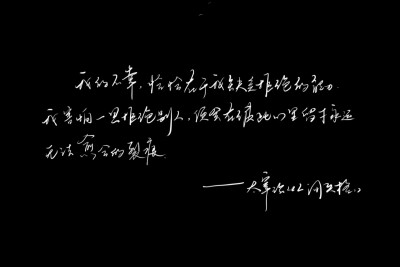 我的不幸，恰恰在于我缺乏拒绝的能力
我害怕一旦拒绝别人，便会在彼此心里留下永远
无法愈合的裂痕
——太宰治《人间失格》